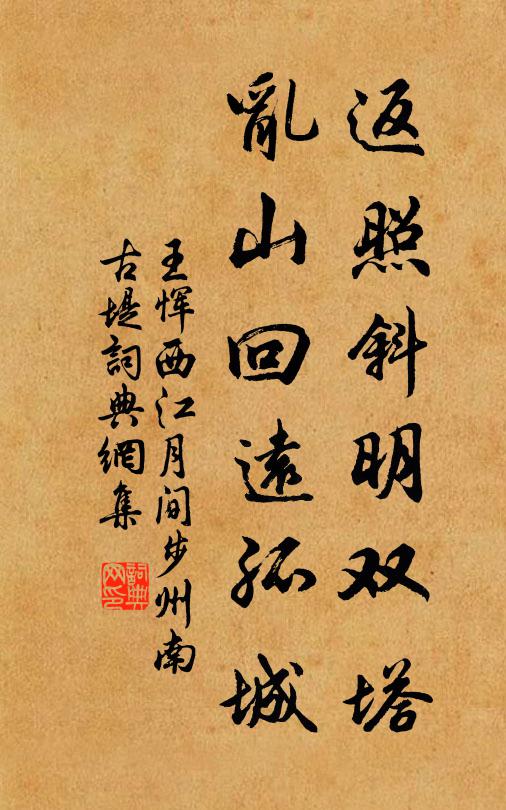 返照斜明双塔
亂山回遠孤城
王惲西江月间步州南
古堤詞典網集
詞典
网印